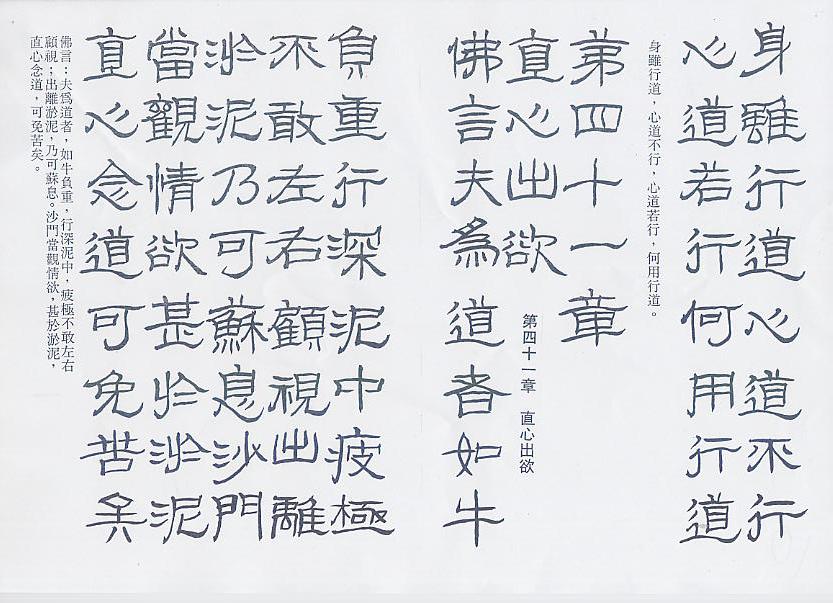 身雖行道心道不行
心道若行何用行道
身雖行道，心道不行，心道若行，何用行道。
第四十一章
直心出欲
第四十一章　直心出欲
佛言夫為道者如牛
負重行深泥中疲極
不敢左右顧視出離
淤泥乃可蘇息沙門
當觀情欲甚於淤泥
直心念道可免苦矣
佛言：夫爲道者，如牛負重，行深泥中，疲極不敢左右
顧視；出離淤泥，乃可蘇息。沙門當觀情欲，甚於淤泥，
直心念道，可免苦矣。